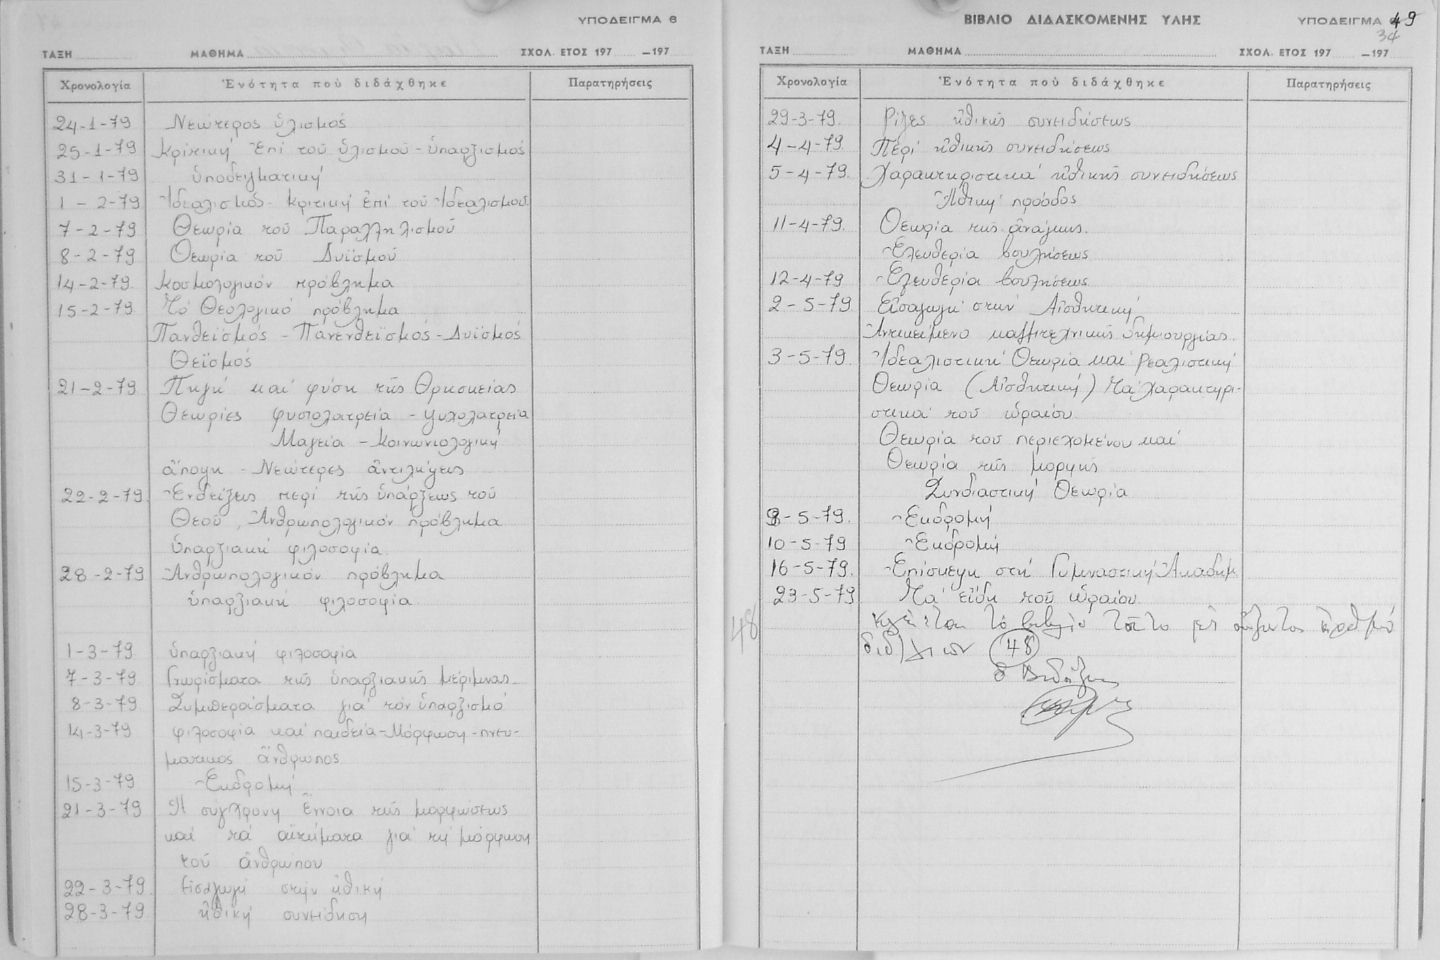 ΥΠΟΔΕΙΓΜΑ 6
ΤΑΞΗ ΜΑΘΗΜΑ ΣΧΟΛ. ΕΤΟΣ 197 —197
Χρονολογία Ἑνότητα ποὺ διδάχθηκε Παρατηρήσεις
24-1-79 Νεώτερος ὑλισμός
25-1-79 Κριτική ἐπί τοῦ ὑλισμοῦ - ὑπαρξισμός
31-1-79
1-2-79 Ἰδεαλισμός - Κριτική ἐπί τοῦ Ἰδεαλισμοῦ
7-2-79 Θεωρία τοῦ Παραλληλισμοῦ
8-2-79 Θεωρία τοῦ Δυϊσμοῦ
14-2-79 Κοσμολογικόν πρόβλημα
15-2-79 Τό Θεολογικό πρόβλημα
Πανθεϊσμός - Πανενθεϊσμός - Δυϊσμός
Θεϊσμός
21-2-79 Πηγή καί φύση τῆς Θρησκείας
Θεωρίες φυσιολατρεία - ψυχολατρεία
Μαγεία - Κοινωνιολογική
ἄποψη - Νεώτερες ἀντιλήψεις
22-2-79 Ἐνδείξεις περί τῆς ὑπάρξεως τοῦ
Θεοῦ, Ἀνθρωπολογικόν πρόβλημα
ὑπαρξιακή φιλοσοφία
28-2-79 Ἀνθρωπολογικόν πρόβλημα
ὑπαρξιακή φιλοσοφία
1-3-79 ὑπαρξιακή φιλοσοφία
7-3-79 Γνωρίσματα τῆς ὑπαρξιακῆς μέριμνας
8-3-79 Συμπεράσματα γιά τόν ὑπαρξισμό
14-3-79 φιλοσοφία καί παιδεία - Μόρφωση - πνευ-
ματικός ἄνθρωπος
15-3-79 Ἐκδρομή
21-3-79 Ἡ σύγχρονη ἔννοια τῆς μορφώσεως
καί τά αἰτήματα γιά τή μόρφωση
τοῦ ἀνθρώπου
22-3-79 Εἰσαγωγή στήν ἠθική
28-3-79 ἠθική συνείδηση
ΒΙΒΛΙΟ ΔΙΔΑΣΚΟΜΕΝΗΣ ΥΛΗΣ ΥΠΟΔΕΙΓΜΑ 49
34
ΤΑΞΗ ΜΑΘΗΜΑ ΣΧΟΛ. ΕΤΟΣ 197 —197
Χρονολογία Ἑνότητα ποὺ διδάχθηκε Παρατηρήσεις
29-3-79. Ρίζες ἠθικῆς συνειδήσεως
4-4-79 Περί ἠθικῆς συνειδήσεως
5-4-79. Χαρακτηριστικά ἠθικῆς συνειδήσεως
Ἠθική πρόοδος
11-4-79. Θεωρία τῆς ἀνάγκης.
Ἐλευθερία βουλήσεως
12-4-79 Ἐλευθερία βουλήσεως
2-5-79 Εἰσαγωγή στήν Αἰσθητική
Ἀντικείμενο καλλιτεχνικῆς δημιουργίας.
3-5-79. Ἰδεαλιστική Θεωρία καί ρεαλιστική
Θεωρία (Αἰσθητική) Τά χαρακτηρι-
στικά τοῦ ὡραίου
Θεωρία του περιεχομένου καί
Θεωρία τῆς μορφῆς
Συνδιαστική Θεωρία
9-5-79. Ἐκδρομή
10-5-79 Ἐκδρομή
16-5-79. Ἐπίσκεψη στή Γυμναστική Ἀκαδημ.
23-5-79 Τά εἴδη τοῦ ὡραίου.
48 Κλείεται τό βιβλίο τοῦτο μέ
48